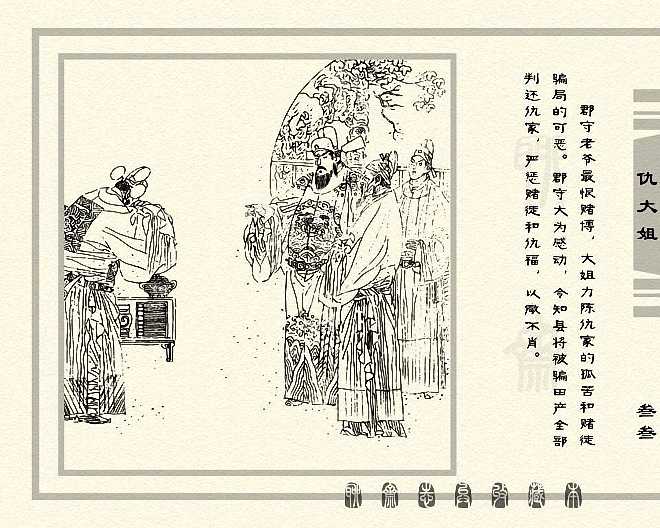 郡守老爷最恨赌博，大姐力陈仇家的孤苦和赌徒
骗局的可恶。郡守大为感动，令知县将被骗田产全部
判还仇家，严惩赌徒和仇福，以儆不肖。
仇大姐
叁叁
聊斋志异收藏本